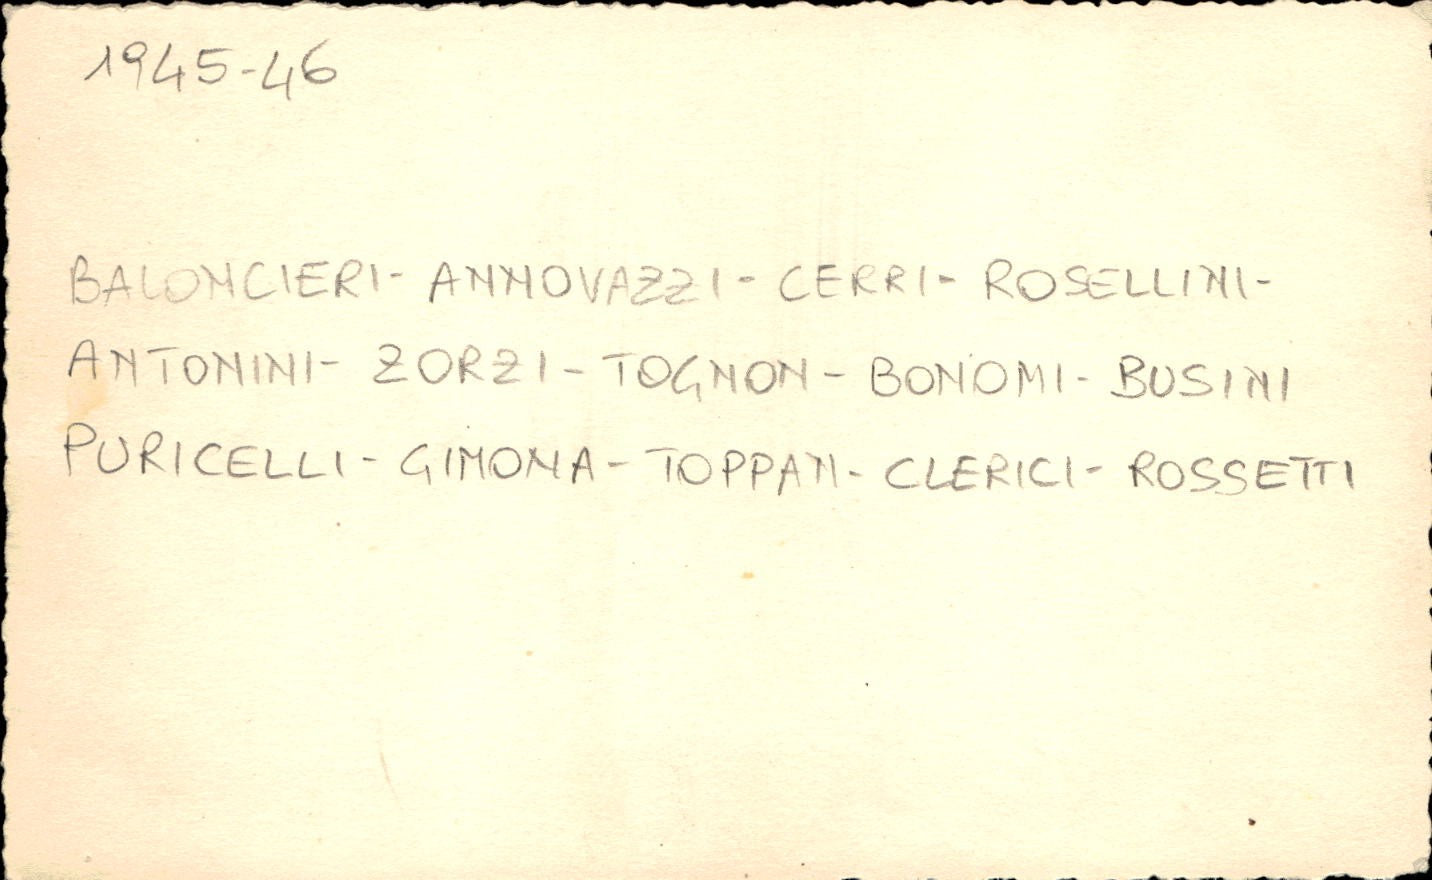 1945-46
BALONCIERI- ANNOVAZZI- CERRI- ROSELLINI-
ANTONINI- ZORZI- TOGNON- BONOMI- BUSINI
PURICELLI- GIMONA- TOPPAN- CLERICI- ROSSETTI